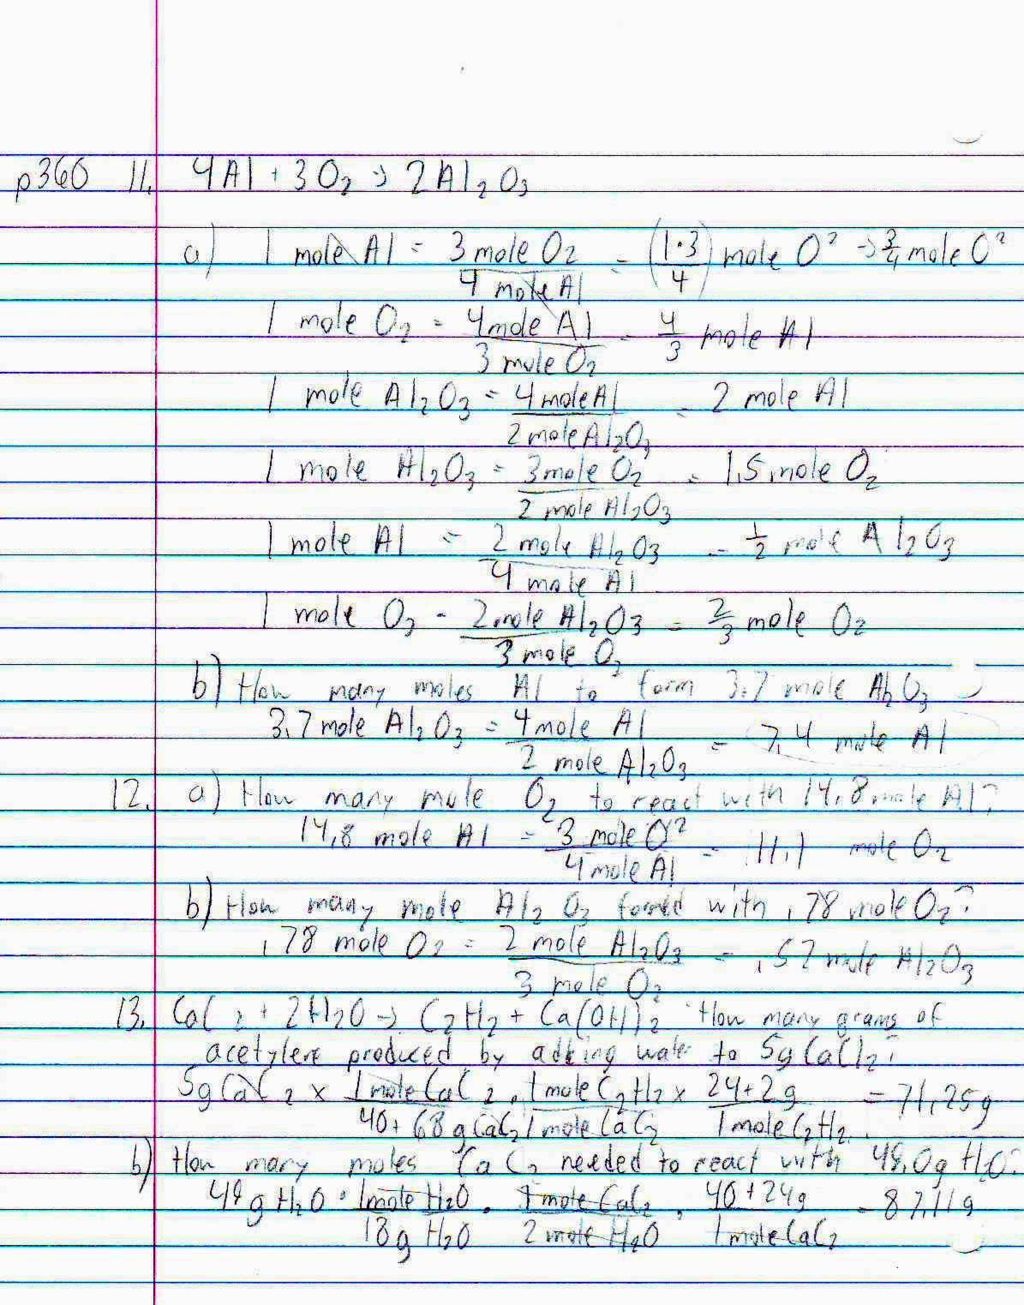 p360 11. 4Al + 3O₂ → 2Al₂O₃
a) 1 mole Al = 3 mole O₂ / 4 mole Al = (1·3 / 4) mole O² → 3/4 mole O²
1 mole O₂ = 4 mole Al / 3 mole O₂ = 4/3 mole Al
1 mole Al₂O₃ = 4 mole Al / 2 mole Al₂O₃ = 2 mole Al
1 mole Al₂O₃ = 3 mole O₂ / 2 mole Al₂O₃ = 1.5 mole O₂
1 mole Al = 2 mole Al₂O₃ / 4 mole Al = 1/2 mole Al₂O₃
1 mole O₂ = 2 mole Al₂O₃ / 3 mole O₂ = 2/3 mole O₂
b) How many moles Al to form 3.7 mole Al₂O₃
3.7 mole Al₂O₃ = 4 mole Al / 2 mole Al₂O₃ = 7.4 mole Al
12. a) How many mole O₂ to react with 14.8 mole Al?
14.8 mole Al = 3 mole O² / 4 mole Al = 11.1 mole O₂
b) How many mole Al₂O₃ formed with .78 mole O₂?
.78 mole O₂ = 2 mole Al₂O₃ / 3 mole O₂ = .52 mole Al₂O₃
13. CaC₂ + 2H₂O → C₂H₂ + Ca(OH)₂ How many grams of
acetylene produced by adding water to 5g CaCl₂?
5g CaC₂ × 1 mole CaC₂ / 40+68 g CaC₂ · 1 mole C₂H₂ / 1 mole CaC₂ × 24+2g / 1 mole C₂H₂ = 71.25g
b) How many moles CaC₂ needed to react with 49.0g H₂O?
49g H₂O · 1 mole H₂O / 18g H₂O · 1 mole CaC₂ / 2 mole H₂O · 40+24g / 1 mole CaC₂ = 87.11g